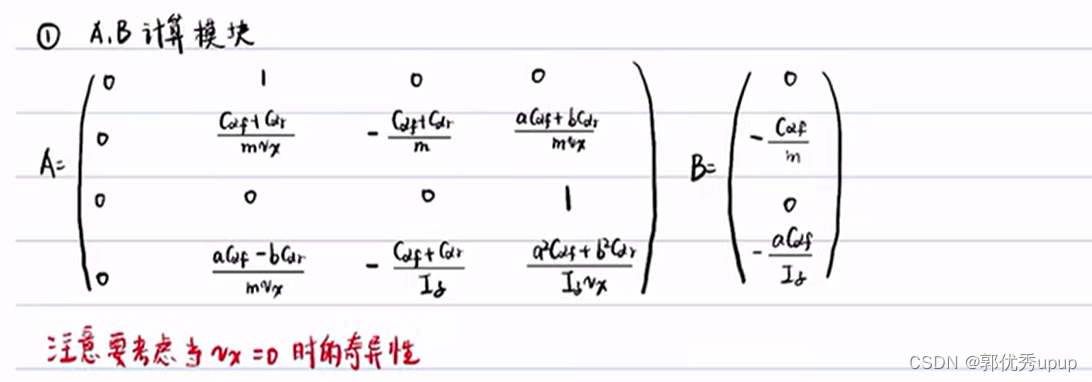 ① A,B 计算模块
A= ( 0 1 0 0
0 (Cαf+Cαr)/(mvx) -(Cαf+Cαr)/m (aCαf+bCαr)/(mvx)
0 0 0 1
0 (aCαf-bCαr)/(mvx) -(Cαf+Cαr)/Iz (a²Cαf+b²Cαr)/(Izvx) )
B= ( 0
-Cαf/m
0
-aCαf/Iz )
注意要考虑当 vx=0 时的奇异性
CSDN @郭优秀upup